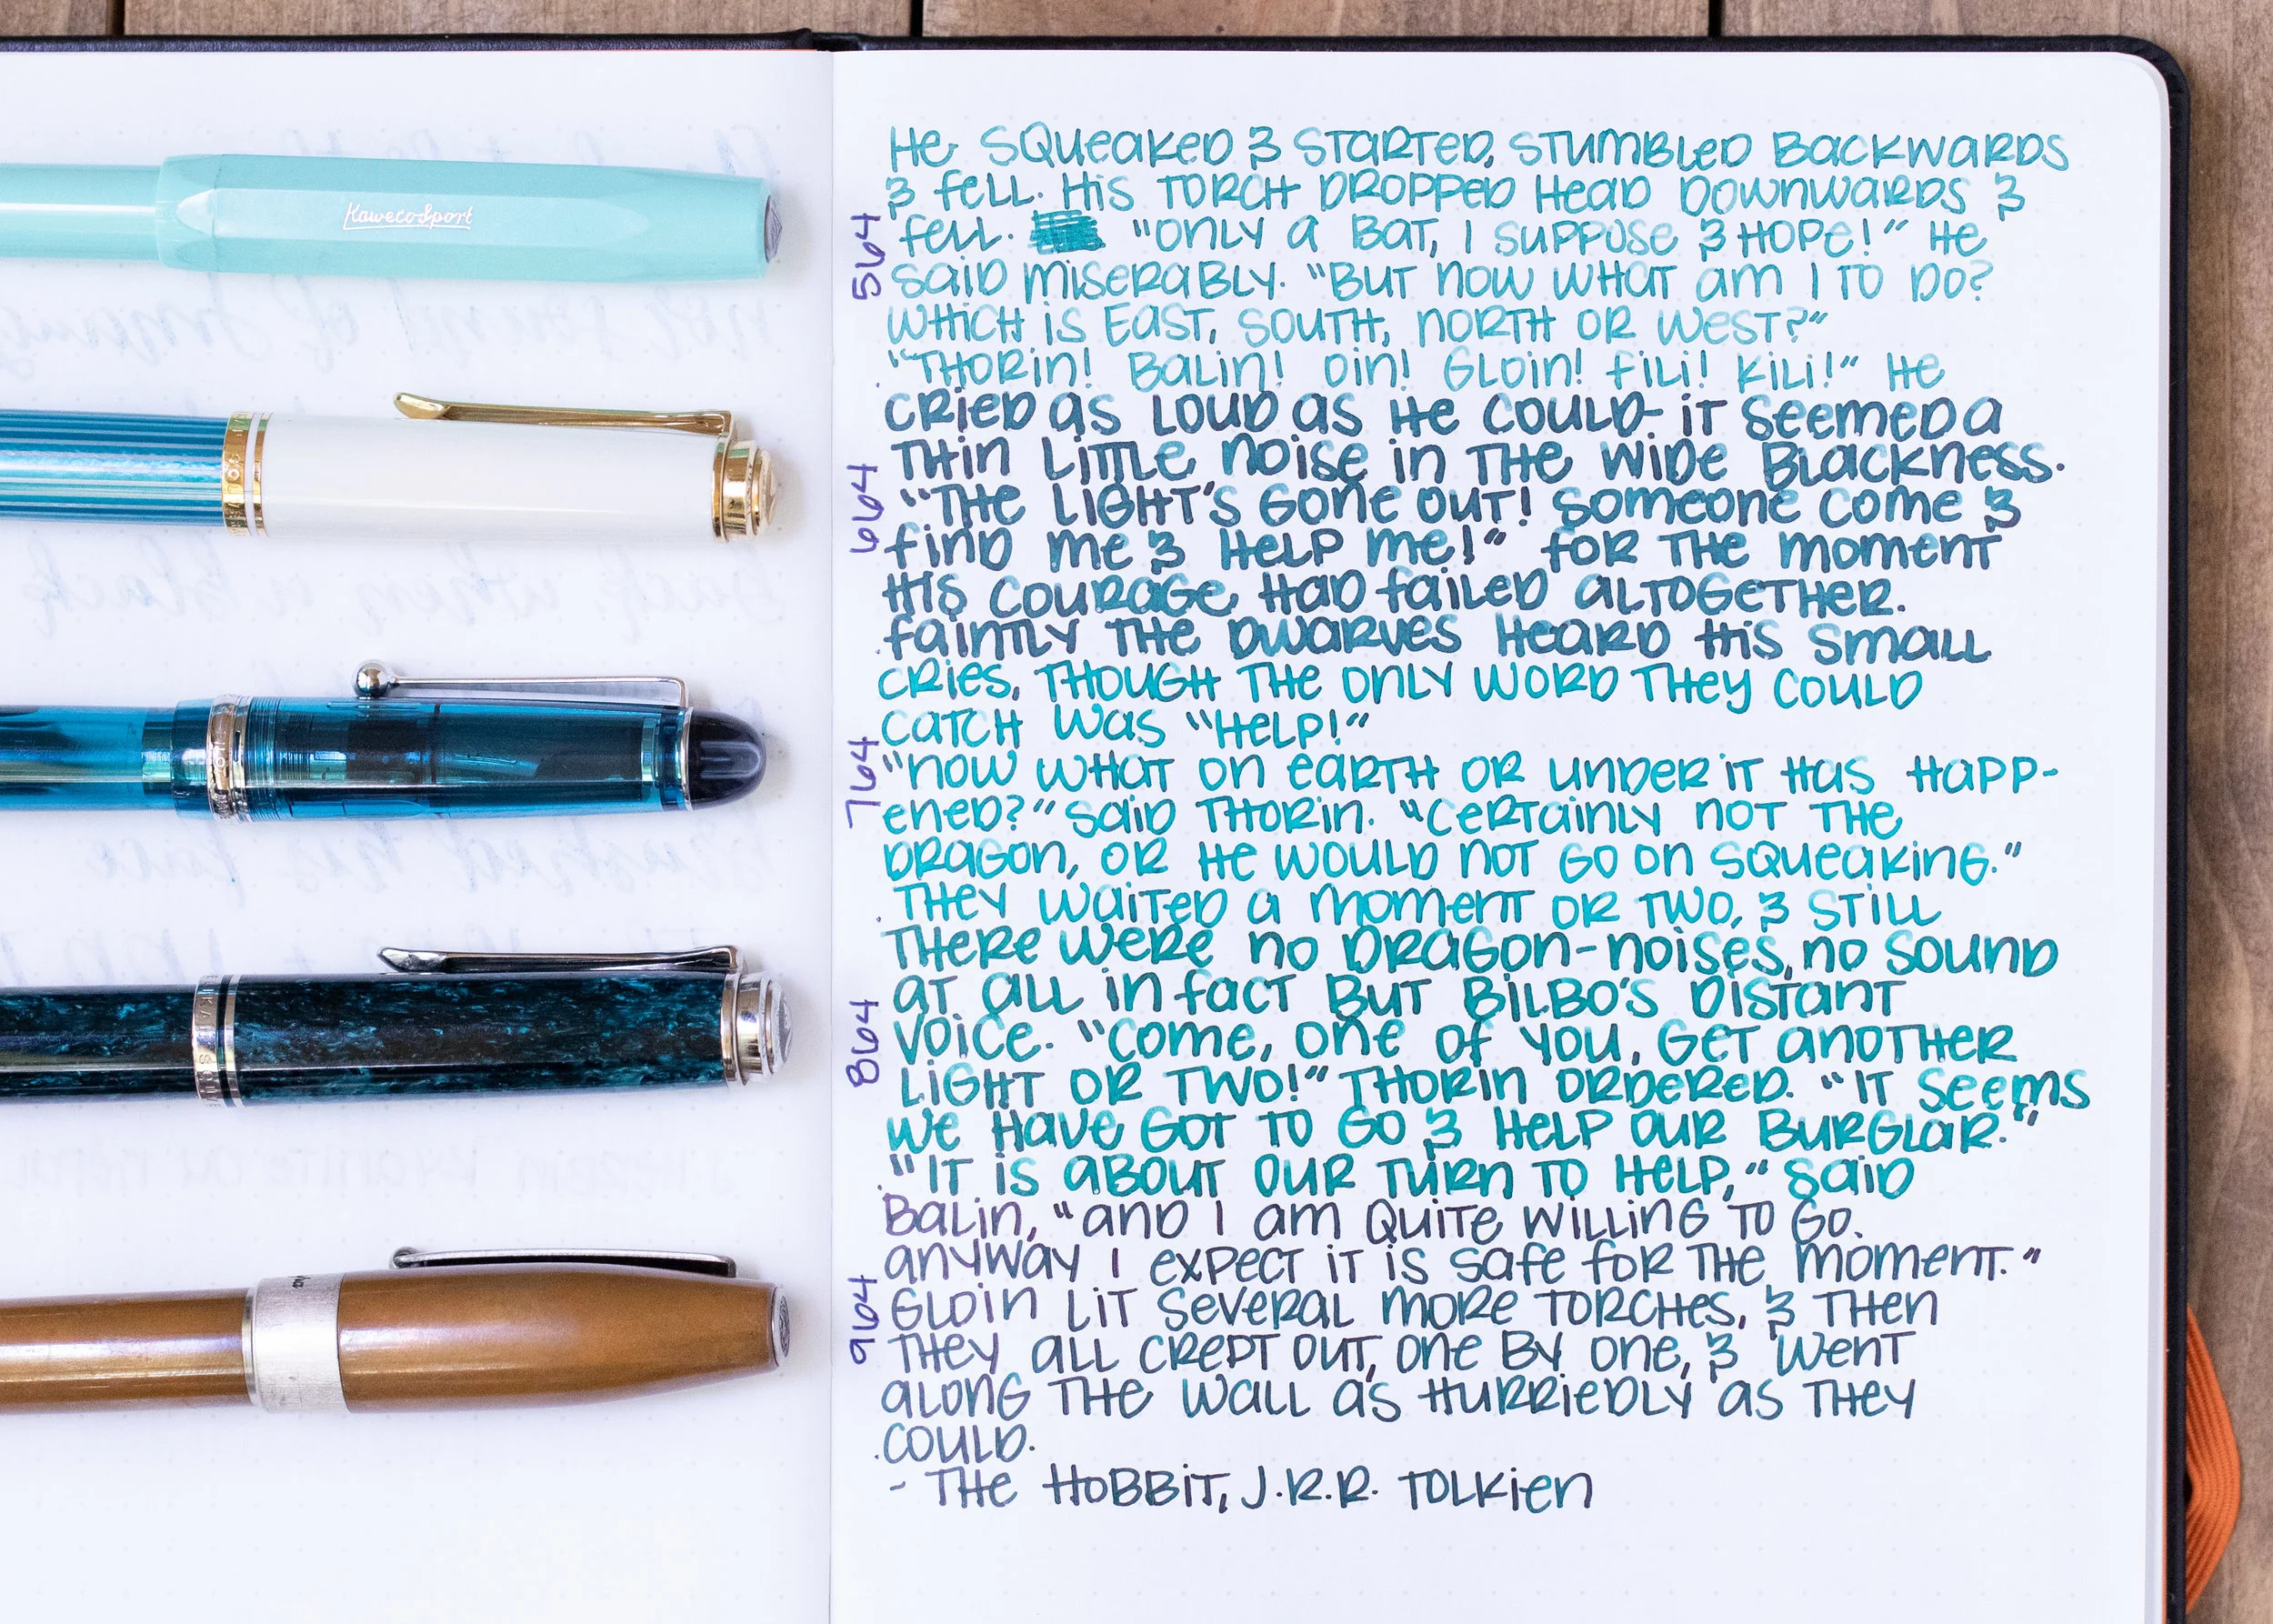 KawecoSport
564
664
764
864
964
He squeaked & started, stumbled backwards
& fell. His torch dropped head downwards &
fell. "Only a bat, I suppose & hope!" He
said miserably. "But now what am I to do?
Which is East, South, North or West?"
"Thorin! Balin! Oin! Gloin! Fili! Kili!" He
cried as loud as he could - it seemed a
thin little noise in the wide blackness.
"The light's gone out! Someone come &
find me & help me!" For the moment
his courage had failed altogether.
Faintly the dwarves heard his small
cries, though the only word they could
catch was "Help!"
"Now what on earth or under it has happ-
ened?" said Thorin. "Certainly not the
dragon, or he would not go on squeaking."
They waited a moment or two, & still
there were no dragon-noises, no sound
at all in fact but Bilbo's distant
voice. "Come, one of you, get another
light or two!" Thorin ordered. "It seems
we have got to go & help our burglar."
"It is about our turn to help," said
Balin, "and I am quite willing to go.
Anyway I expect it is safe for the moment."
Gloin lit several more torches, & then
they all crept out, one by one, & went
along the wall as hurriedly as they
could.
- The Hobbit, J.R.R. Tolkien